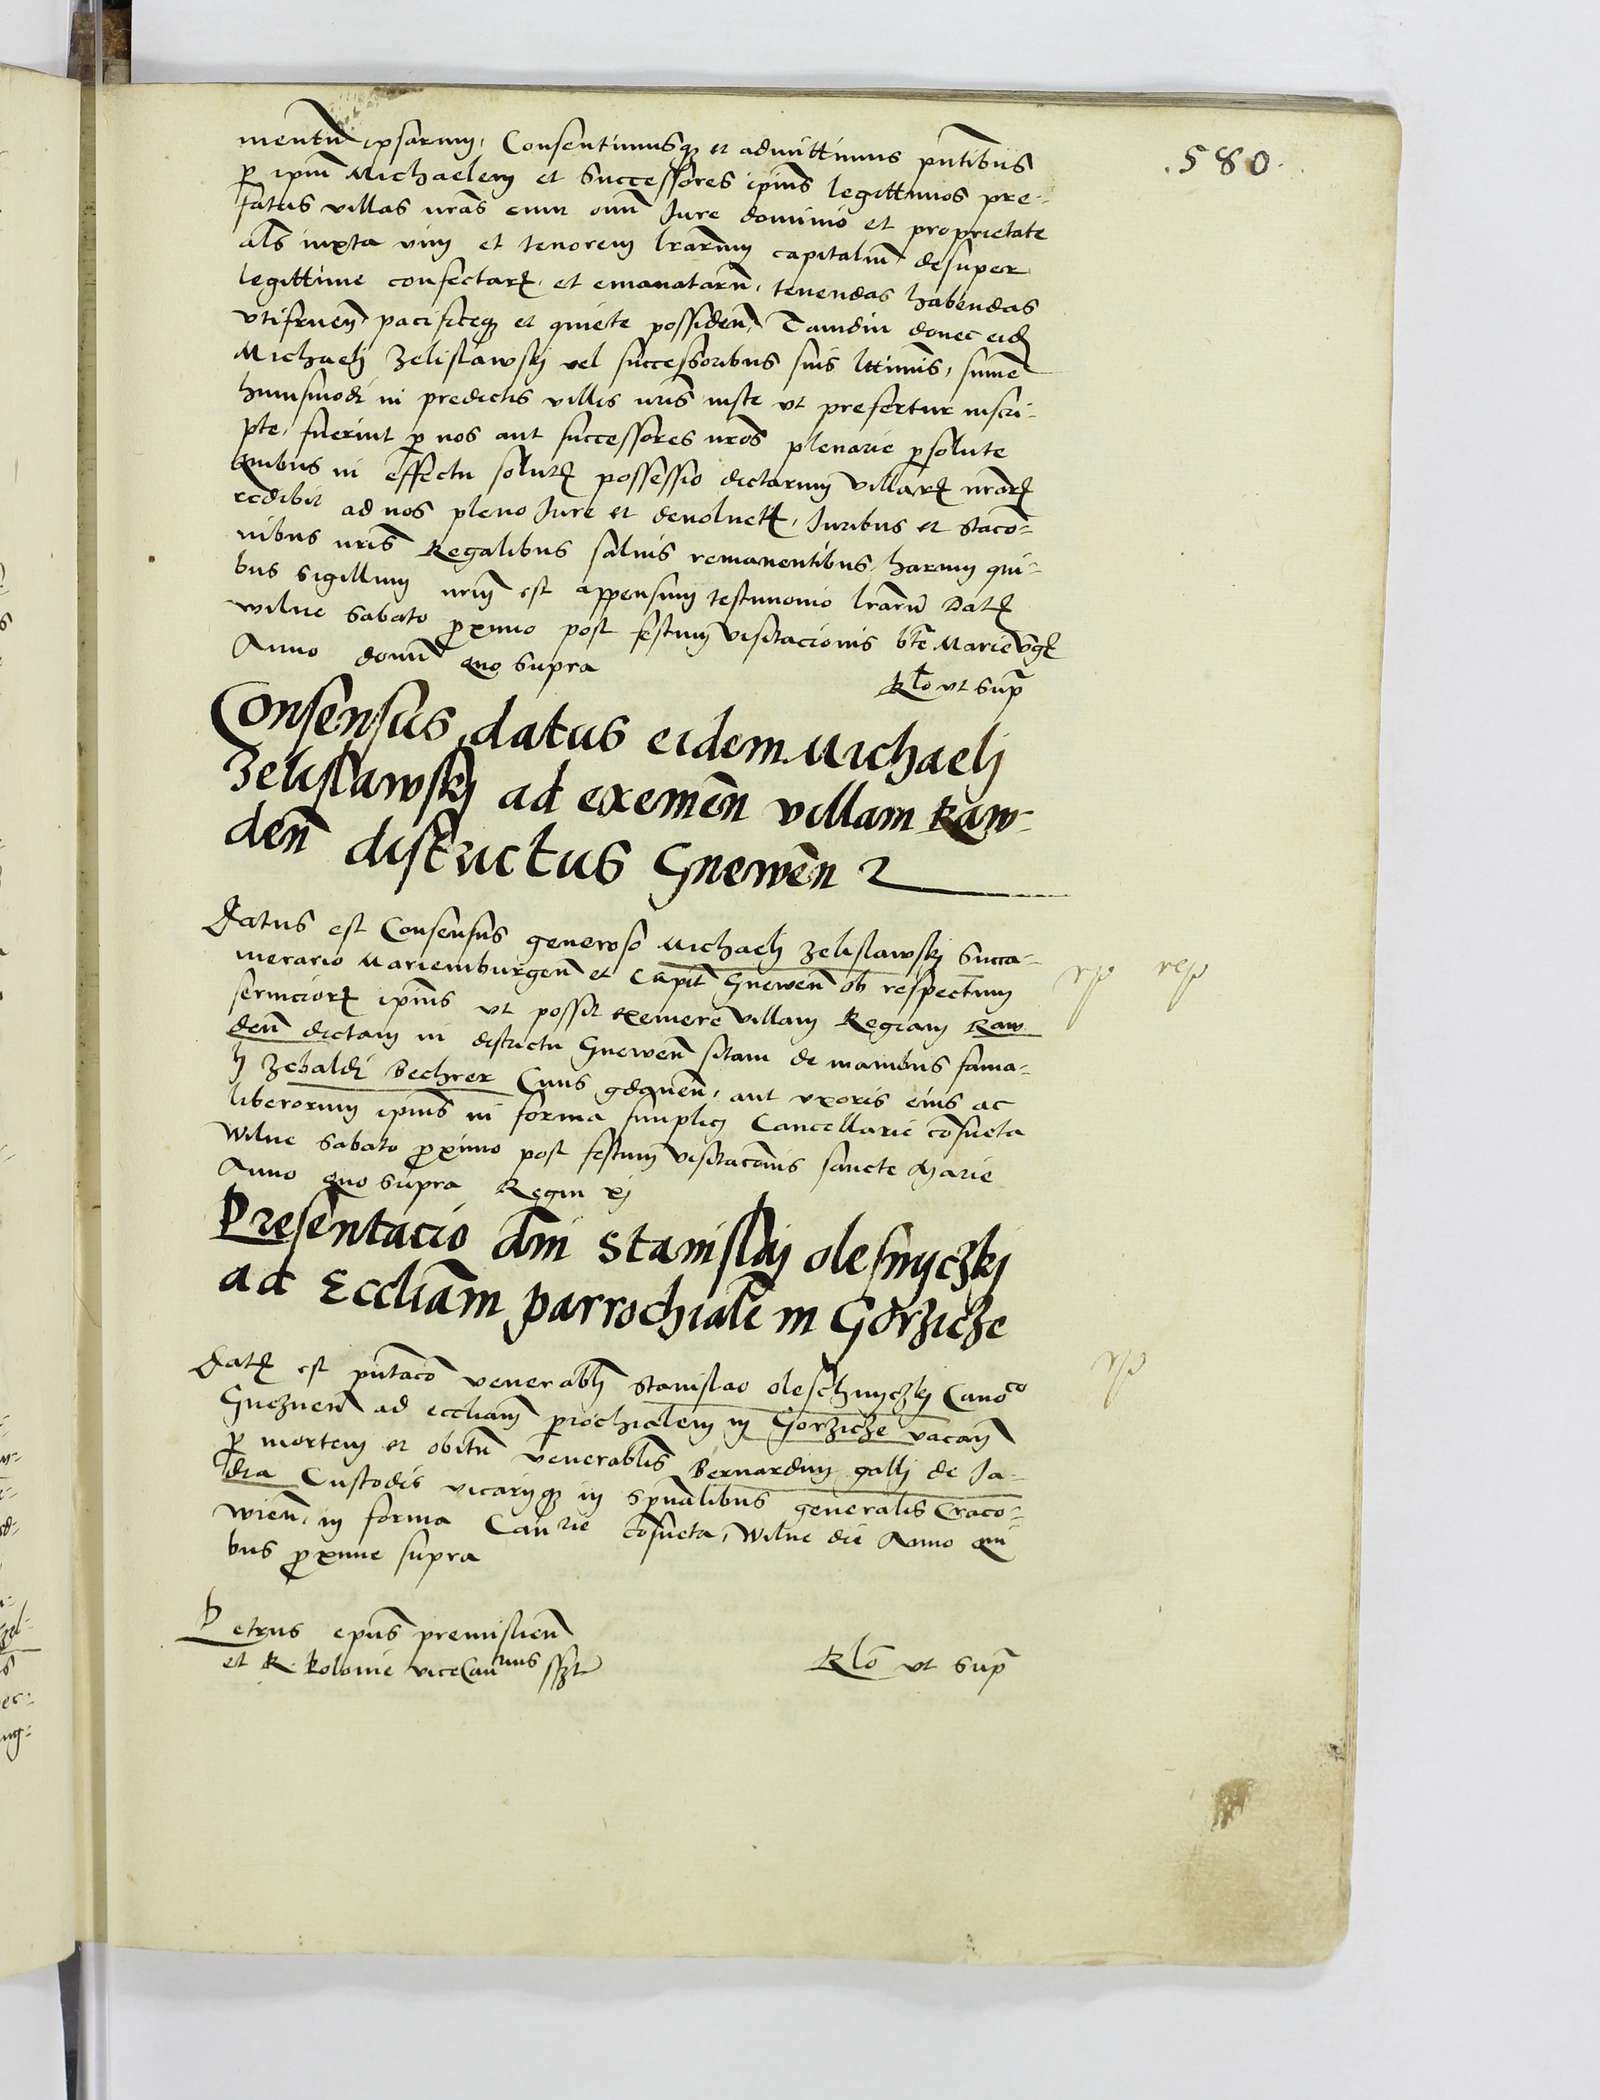 .580.
mentũ ipsarum, Consentimusqz et admittimus pñtibus
p ipm̃ Michaelem et Successores ip̃ius legittimos pre-
fatas villas nr̃as cum om̃i Jure dominio et proprietate
al̃s iuxta vim et tenorem lr̃arum capitaliũ desuper
legittime confectarꝝ et emanatarũ, tenendas habendas
vtifruen̄ pacificeqz et quiete possiden̄, Tamdiu donec eid̃
Michaelj Zelislawskj vel successoribus suis lttimis, sume
huiusmodi in predictis villis nr̃is iuste vt prefertur inscri-
pte, fuerint p nos aut successores nr̃os plenarie psolute
quibus in effectu solutꝝ possessio dictarum villarꝝ nr̃arꝝ
redibit ad nos pleno Jure et deuoluetr, Juribus et stacõ-
nibus nr̃is Regalibus saluis remanentibus, harum qui-
bus sigillum nr̃m est appensum testimonio lr̃arũ Datꝝ
wilne Sabato proximo post festum visitacionis btẽ Marie vgꝝ
Anno domĩ quo supra
Rlõ vt supꝛ
Consensus datus eidem Michaelj
Zelislawskj ad exemen̄ villam Raw-
den̄ districtus Gnewen̄
Datus est Consensus generoso Michaelj Zelislawskj Succa-
merario Mariemburgen̄ et Capit̃ Gnewen̄ ob respectum
seruiciorꝝ ip̃ius vt possit exemere villam Regiam Raw
den̄ dictam in districtu Gnewen̄ sitam de manibus fama-
ti Zebaldi Bechrer Ciuis gdanen̄, aut vxoris eius ac
liberorum ip̃ius in forma simplicj Cancellarie cõsueta
Wilne Sabato proximo post festum visitacõnis sancte Marie
Anno quo supra Regni xj
rp rep
Presentacio dm̃i Stanislaj olesnyczkj
ad Eccliãm parrochialẽ in Gorzicze
Datꝝ est pñtacõ venerablj Stanislao oleschnyczkj Canoco
Gneznen̄ ad eccliam̃ prochialem in Gorzicze vacan̄
p mortem et obitũ venerablis Bernardum gallj de Ja-
dra Custodis vicarijqz in sp̃ualibus generalis Craco-
wien̄, in forma Can̄rie cõsueta, Wilne die Anno qui
bus proxime supra
rp
Petrus ep̃us premislien̄
et R. Polonie viceCanrius sszt
Rlõ vt supꝛ